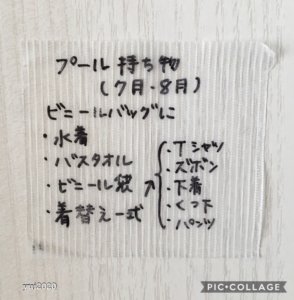 プール持ち物
(7月・8月)
ビニールバッグに
・水着
・バスタオル
・ビニール袋
・着替え一式
・Tシャツ
・ズボン
・下着
・くつ下
・パンツ
yui2020
PIC•COLLAGE